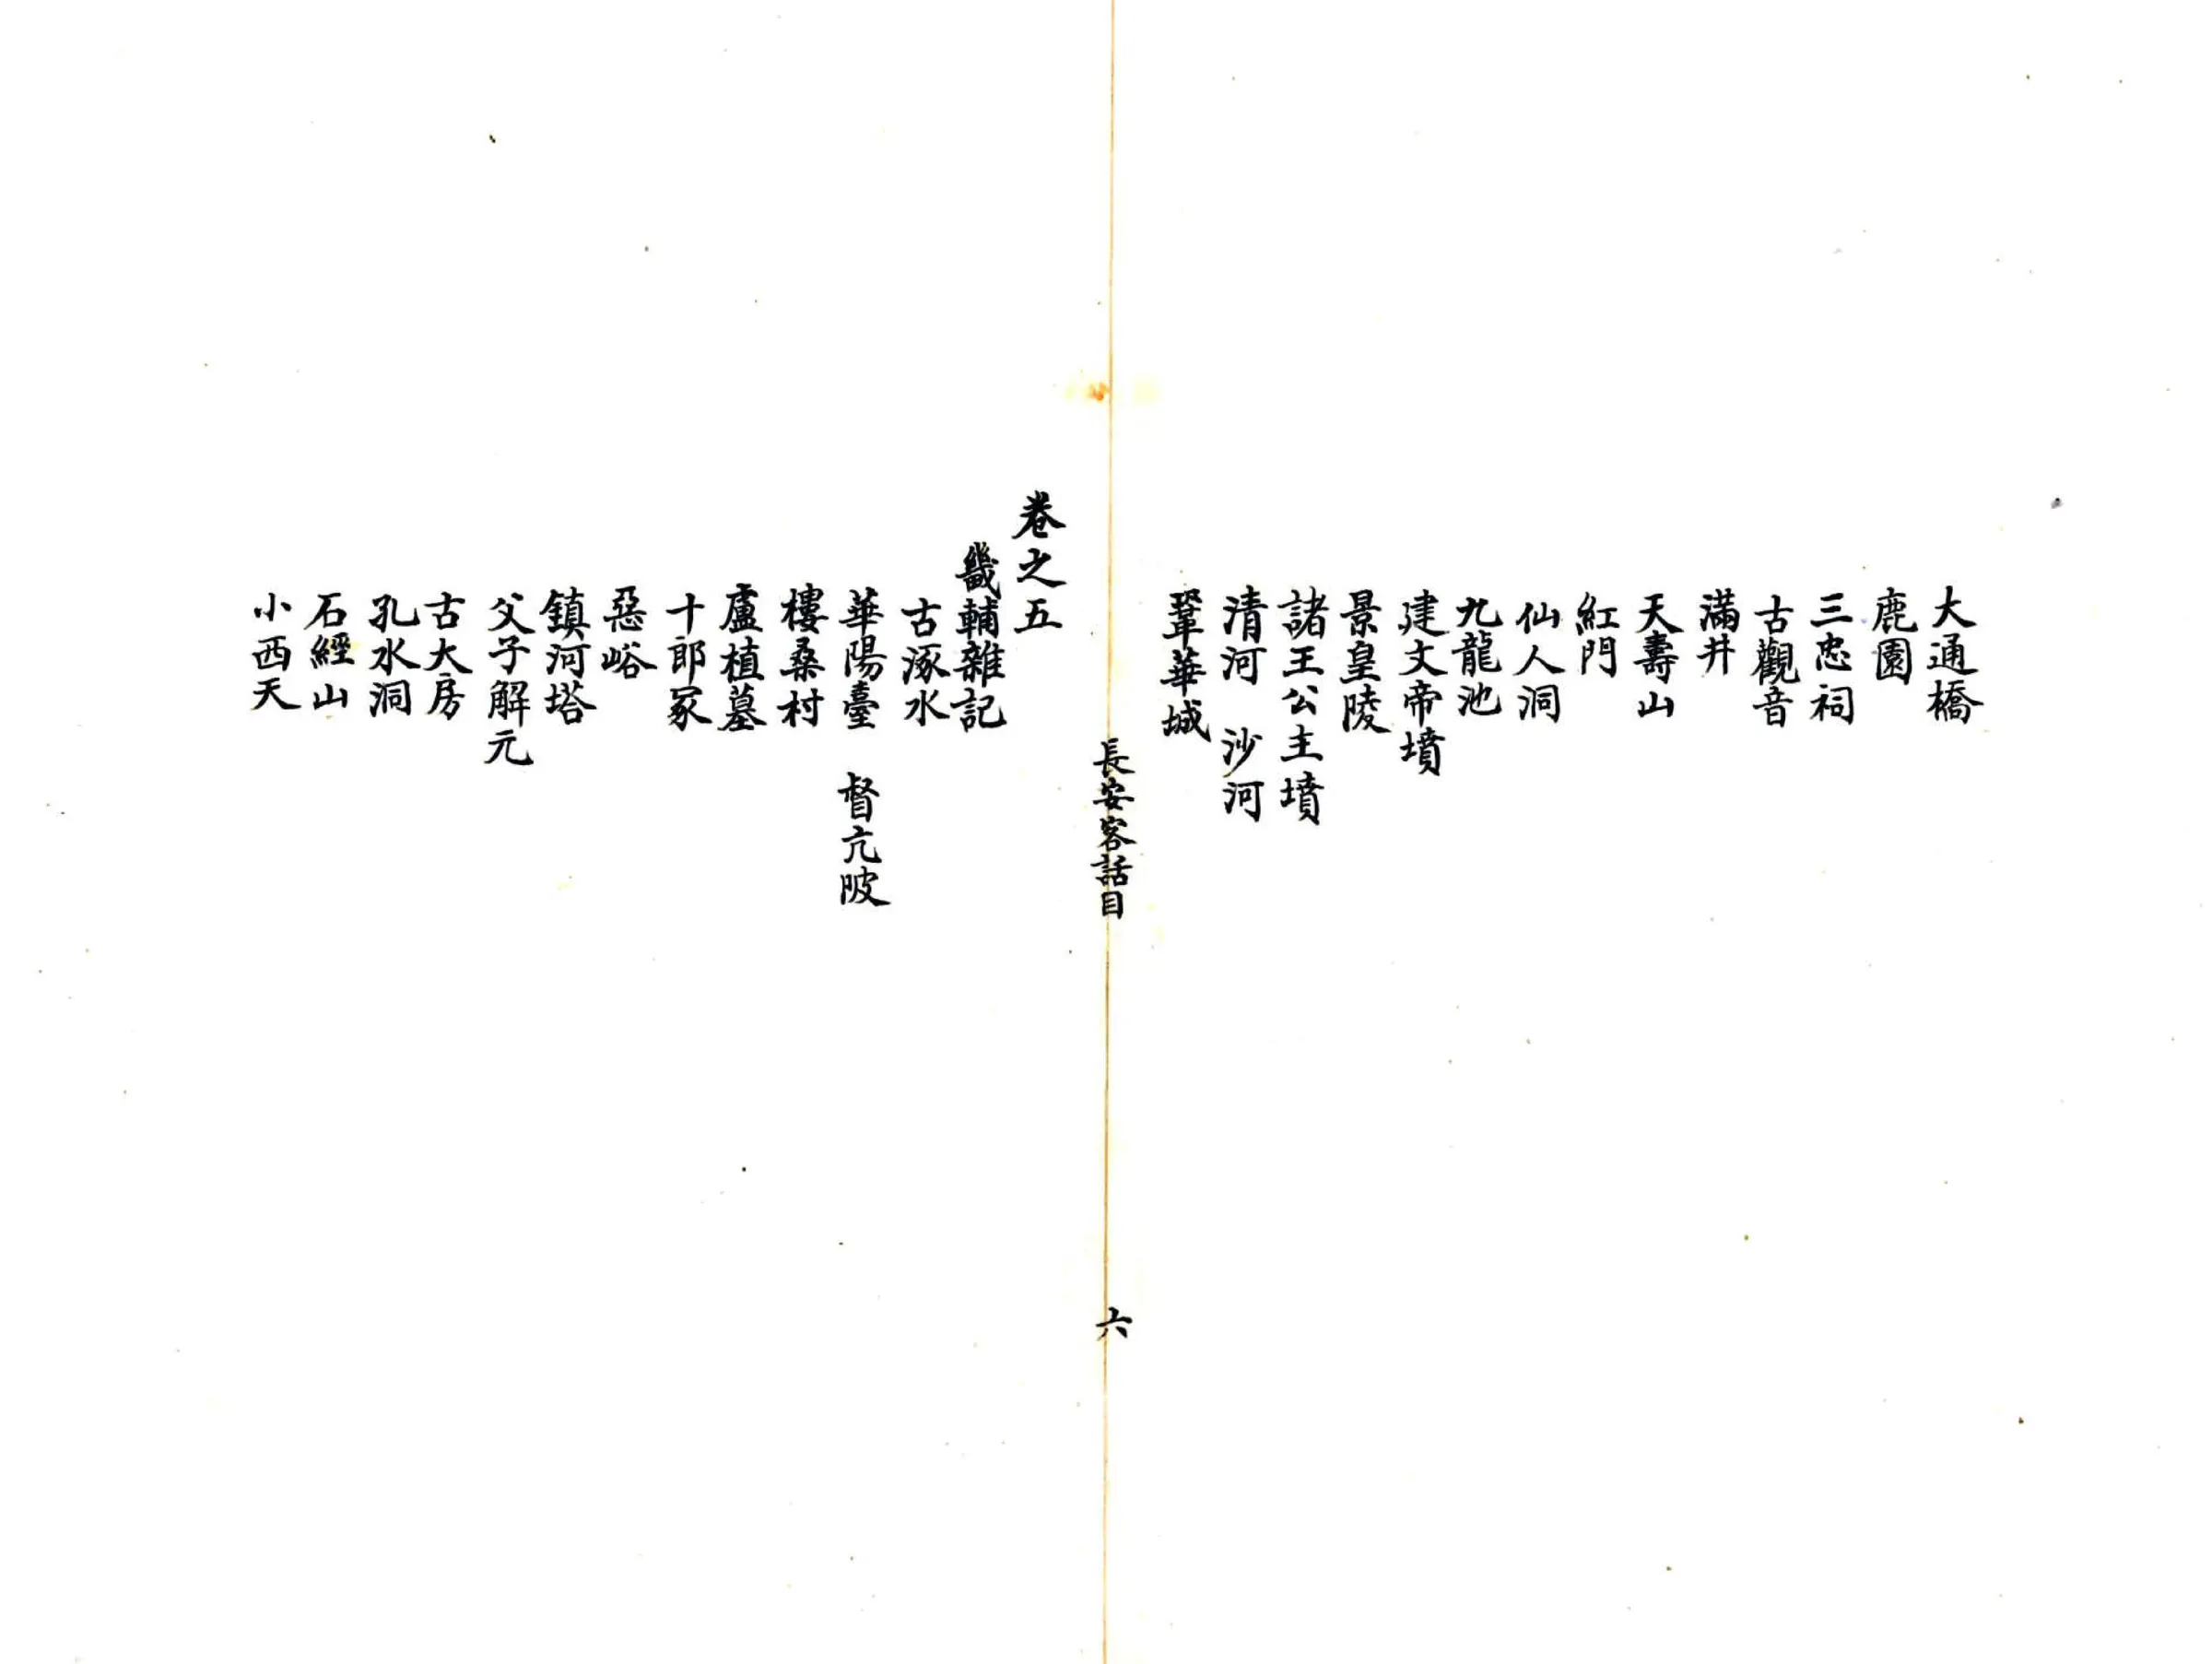 大通橋
鹿園
三忠祠
古觀音
滿井
天壽山
紅門
仙人洞
九龍池
建文帝墳
景皇陵
諸王公主墳
清河　沙河
鞏華城
長安客話目
六
卷之五
畿輔雜記
古涿水
華陽臺　督亢陂
樓桑村
盧植墓
十郎冢
惡峪
鎮河塔
父子解元
古大房
孔水洞
石經山
小西天